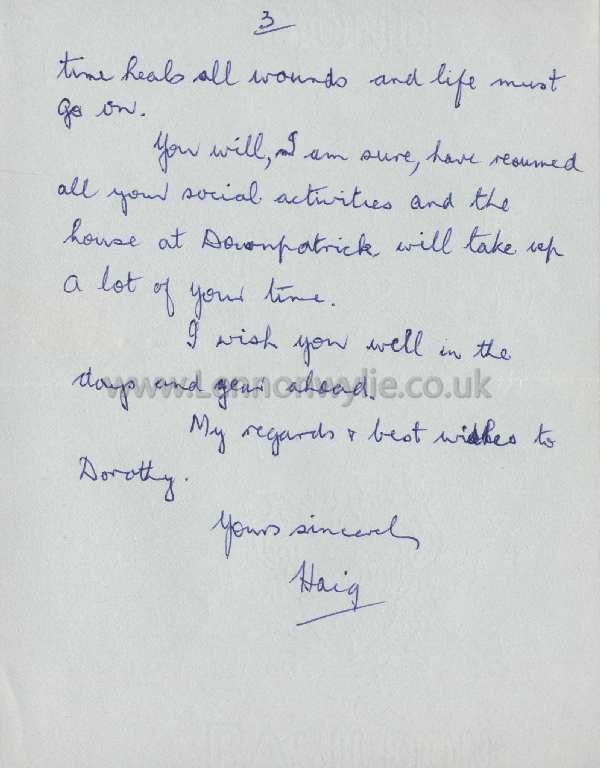 3
time heals all wounds and life must
go on.
You will, I am sure, have resumed
all your social activities and the
house at Downpatrick will take up
a lot of your time.
I wish you well in the
days and year ahead.
www.Lennonwylie.co.uk
My regards & best wishes to
Dorothy.
Yours sincerely
Haig